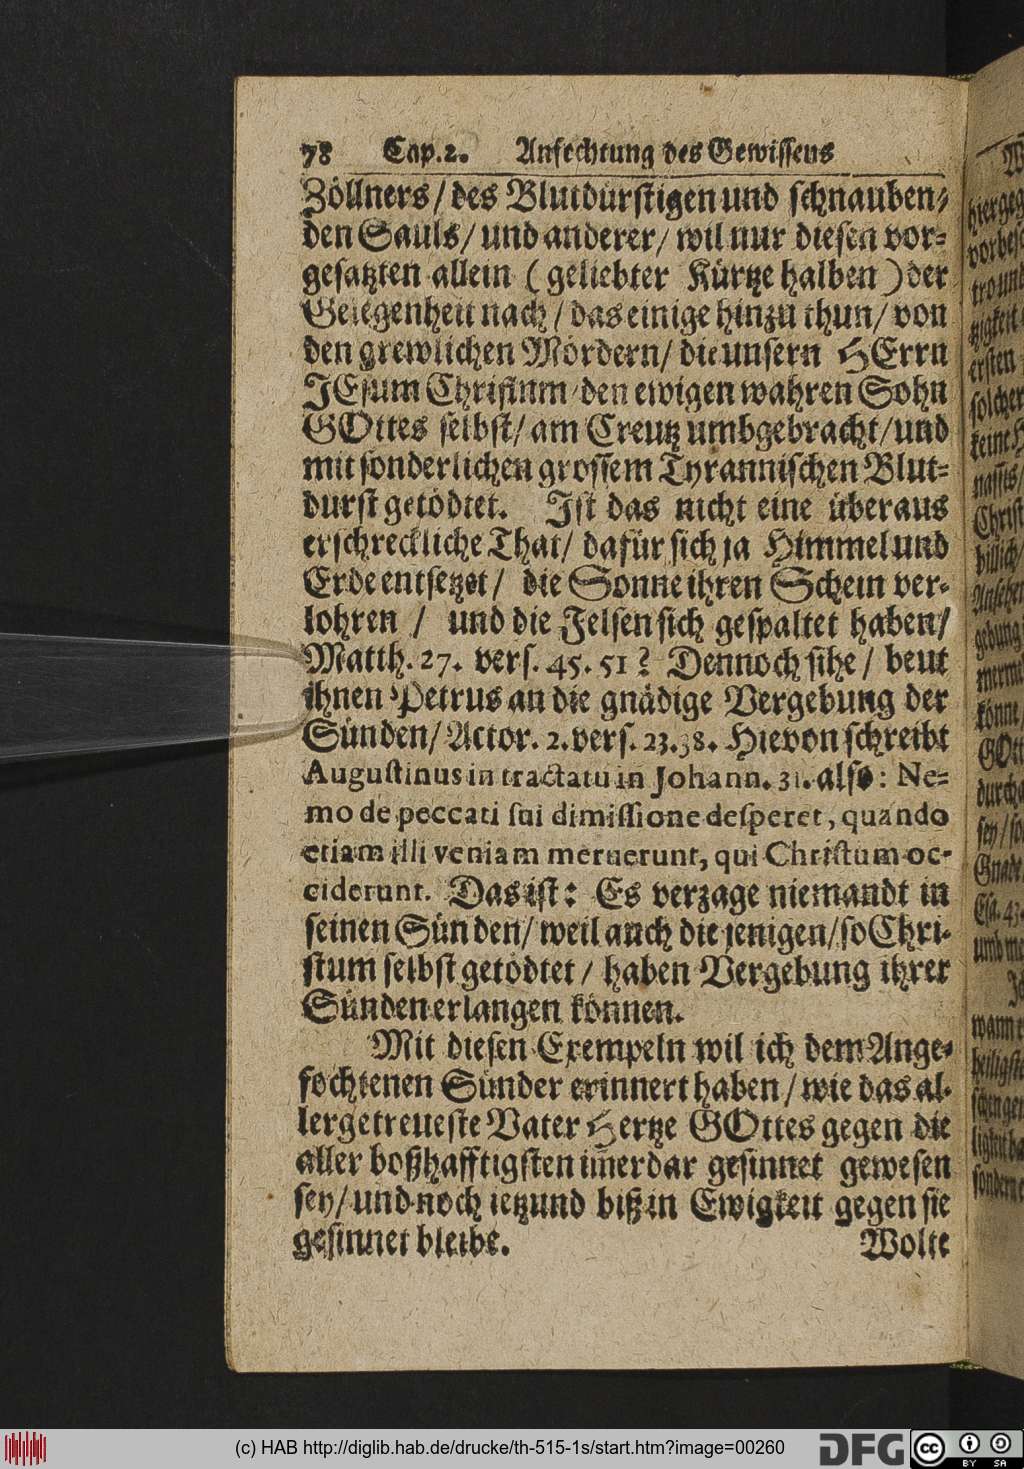 78 Cap. 2. Anfechtung des Gewissens
Zöllners / des Blutdürstigen und schnauben-
den Sauls / und anderer / wil nur diesen vor-
gesatzten allein ( geliebter Kürtze halben ) der
Gelegenheit nach / das einige hinzu thun / von
den grewlichen Mördern / die unsern HErrn
JEsum Christum / den ewigen wahren Sohn
GOttes selbst / am Creutz umbgebracht / und
mit sonderlichen grossem Tyrannischen Blut-
durst getödtet. Ist das nicht eine überaus
erschreckliche That / dafür sich ja Himmel und
Erde entsetzet / die Sonne ihren Schein ver-
lohren / und die Felsen sich gespaltet haben /
Matth. 27. vers. 45. 51 ? Dennoch sihe / beut
ihnen Petrus an die gnädige Vergebung der
Sünden / Actor. 2. vers. 23. 38. Hievon schreibt
Augustinus in tractatu in Johann. 31. also : Ne-
mo de peccati sui dimissione desperet, quando
etiam illi veniam meruerunt, qui Christum oc-
ciderunt. Das ist : Es verzage niemandt in
seinen Sünden / weil auch die jenigen / so Chri-
stum selbst getödtet / haben Vergebung ihrer
Sünden erlangen können.
Mit diesen Exempeln wil ich dem Ange-
fochtenen Sünder erinnert haben / wie das al-
lergetreueste Vater Hertze GOttes gegen die
aller boßhafftigsten im̃erdar gesinnet gewesen
sey / und noch ietzund biß in Ewigkeit gegen sie
gesinnet bleibe. Wolte
(c) HAB http://diglib.hab.de/drucke/th-515-1s/start.htm?image=00260
DFG
cc BY SA